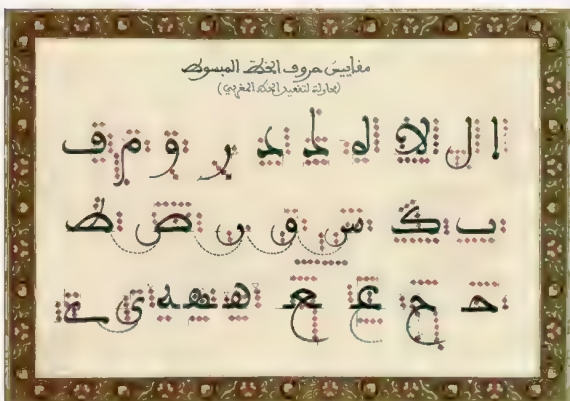 مقاييس حروف الخط المبسوط
(محاولة لتقعيد الخط المغربي)
ا ل لا لو د د ر و م ف
ب ك س ق ن ض ط
ح ج ع ع ه ه ه ى ے